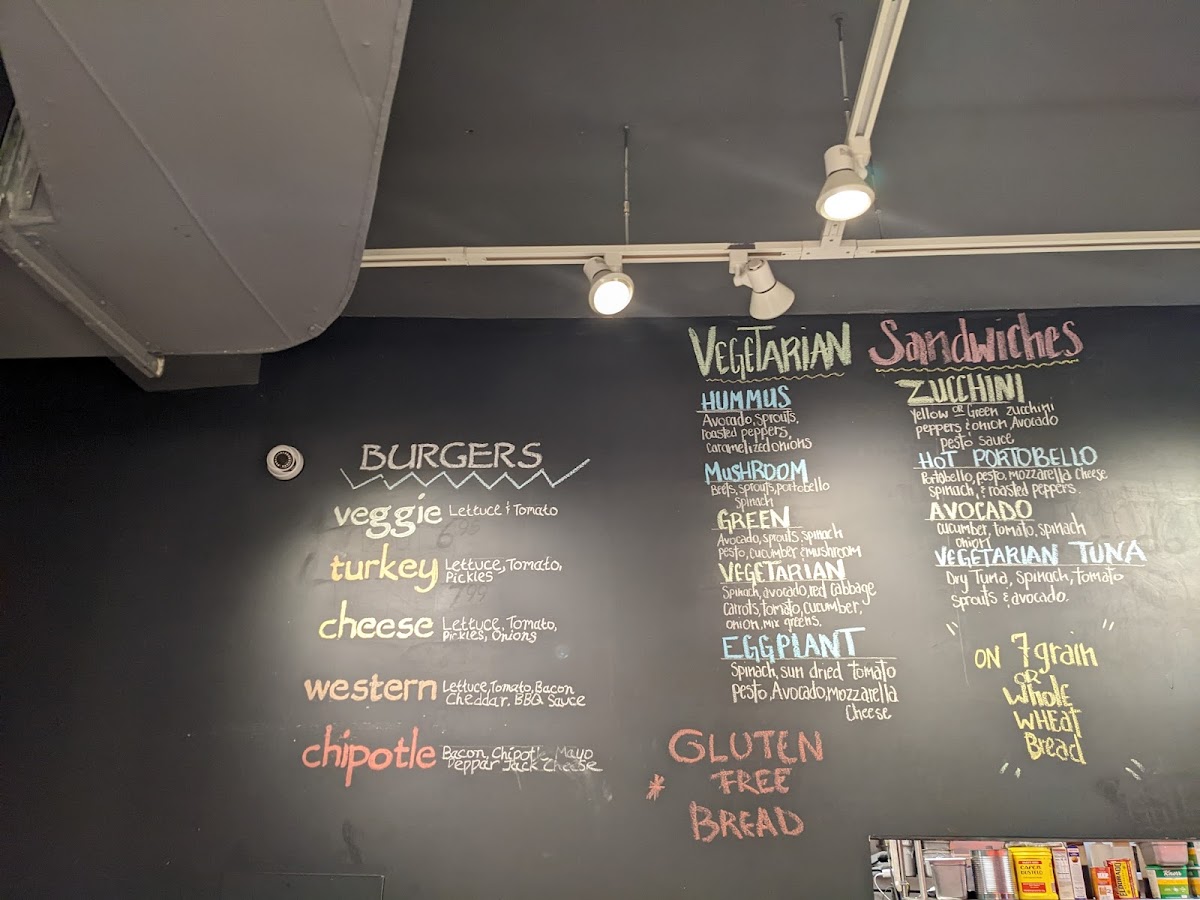 BURGERS
veggie Lettuce & Tomato
6.95
turkey Lettuce, Tomato,
Pickles
7.99
cheese Lettuce, Tomato,
Pickles, Onions
western Lettuce, Tomato, Bacon
Cheddar, BBQ Sauce
chipotle Bacon, Chipotle Mayo
Peppar Jack Cheese
VEGETARIAN Sandwiches
HUMMUS
Avocado, sprouts,
roasted peppers,
caramelized onions
MUSHROOM
Beets, sprouts, portobello
spinach
GREEN
Avocado, sprouts, spinach
pesto, cucumber & mushroom
VEGETARIAN
Spinach, avocado, red cabbage
carrots, tomato, cucumber,
onion, mix greens.
EGGPLANT
Spinach, sun dried tomato
pesto, Avocado, Mozzarella
Cheese
ZUCCHINI
Yellow or Green zucchini
peppers & onion, Avocado
pesto sauce
HOT PORTOBELLO
Portobello, pesto, mozzarella Cheese
spinach, & roasted peppers.
AVOCADO
cucumber, tomato, spinach
onion
VEGETARIAN TUNA
Dry Tuna, spinach, tomato
sprouts & avocado.
" ON 7 grain "
OR
Whole
WHEAT
Bread
GLUTEN
* FREE
BREAD
Knorr